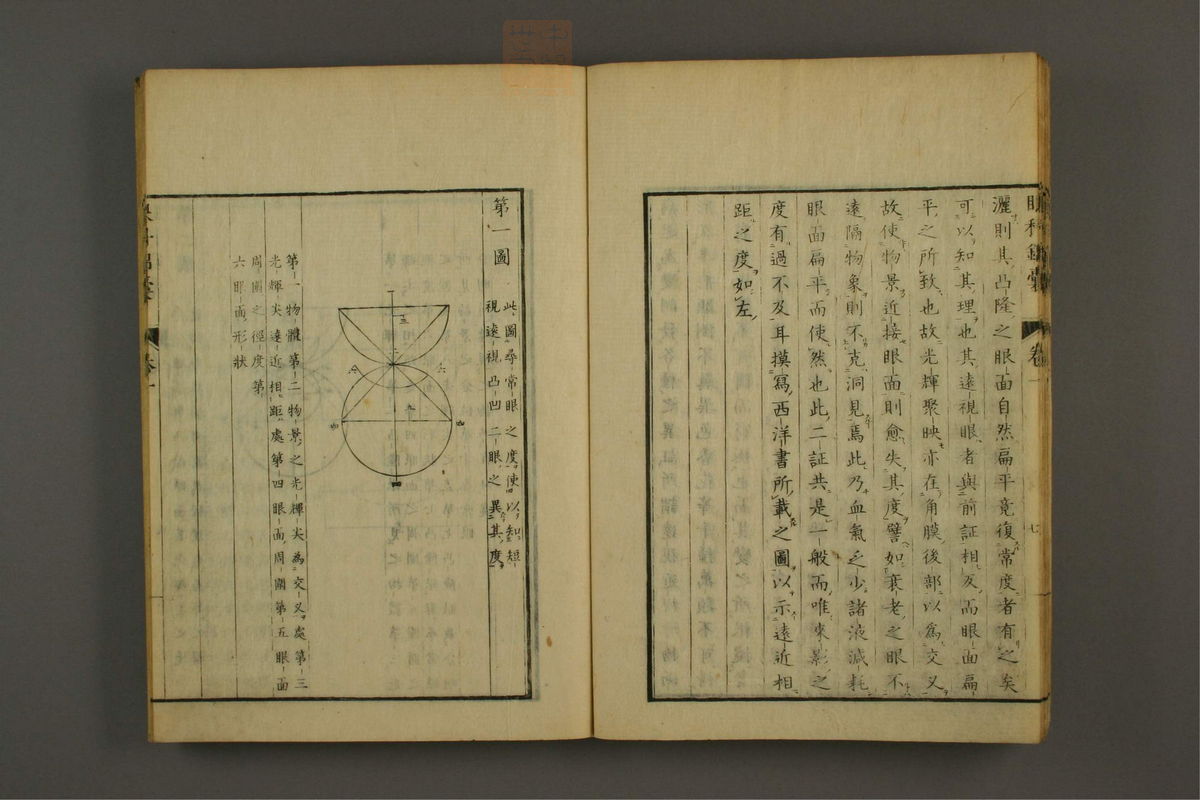 眼科錦囊 卷一 七
灑則其凸隆之眼面自然扁平竟復常度者有之矣
可以知其理也其遠視眼者與前証相反而眼面扁
平之所致也故光輝聚映亦在角膜後部以為交叉
故使物景近接眼面則愈失其度譬如衰老之眼不
遠隔物象則不克洞見焉此乃血氣乏少諸液減耗
眼面扁平而使然也此二証共是一般而唯來影之
度有過不及耳摸寫西洋書所載之圖以示遠近相
距之度如左
第一圖
此圖尋常眼之度使以知短
視遠視凸凹二眼之異其度
三
二
六
五
四
第一物體第二物景之光輝尖為交叉處第三
光輝尖遠近相距處第四眼面周圍第五眼面
周圍之徑度第
六眼面形狀
卷一